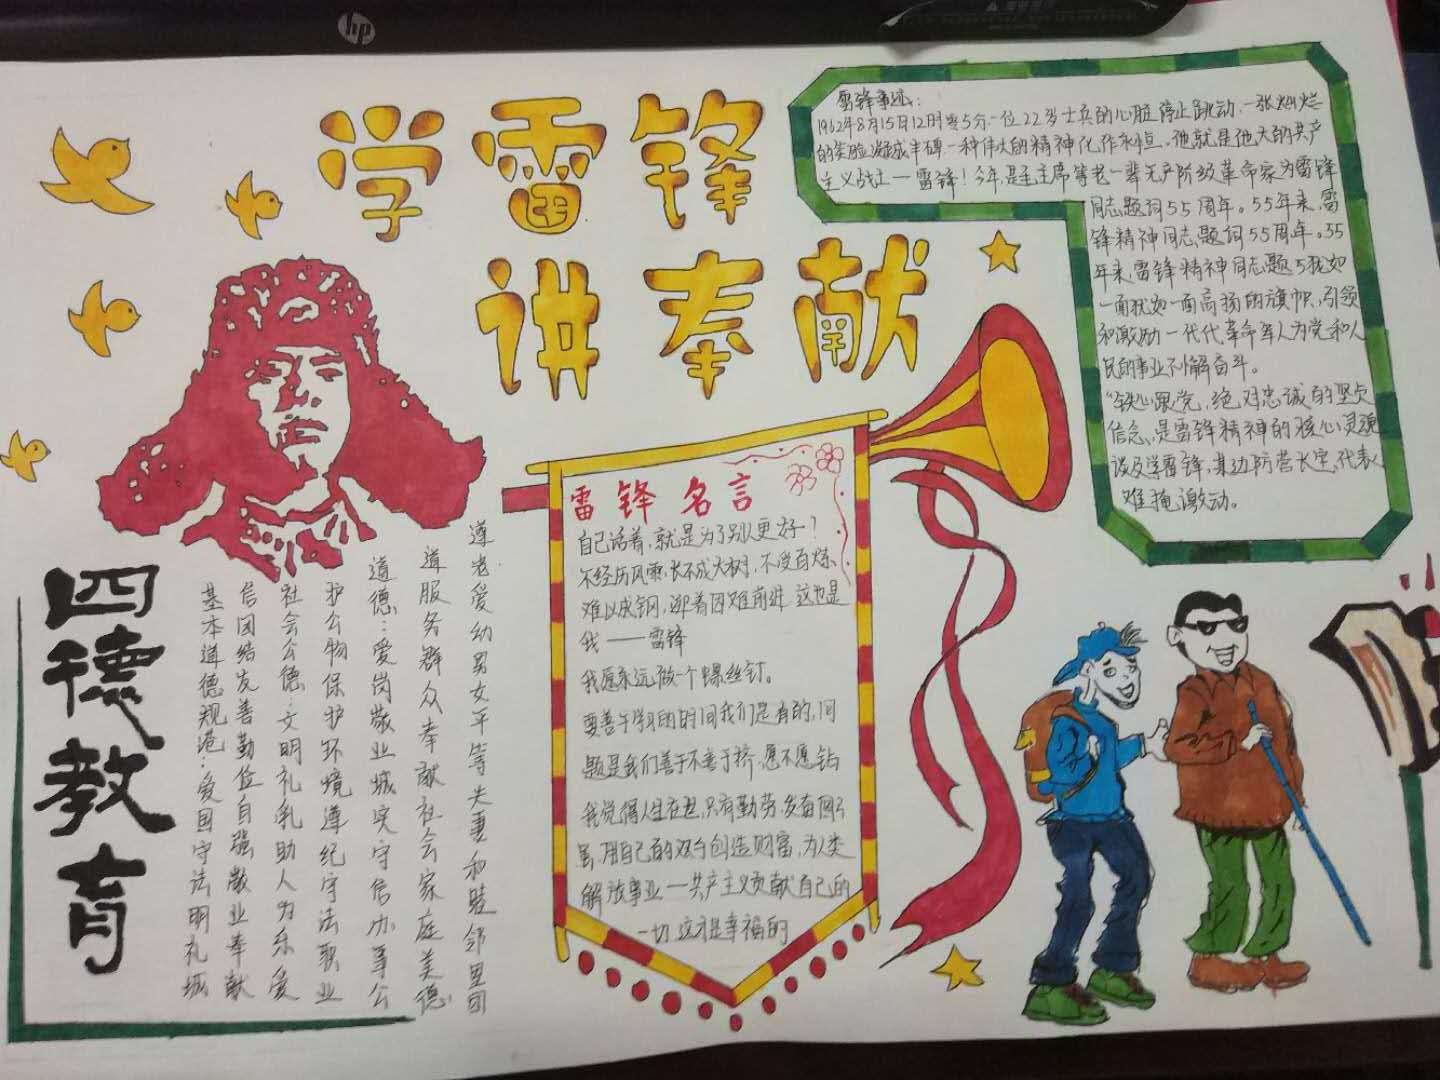 hp
学雷锋
讲奉献
雷锋事迹:
1962年8月15日12时零5分一位22岁士兵的心脏停止跳动.一张灿烂
的笑脸凝成丰碑一种伟大的精神化作永恒、他就是伟大的共产
主义战士—雷锋!今年,是毛主席等老一辈无产阶级革命家为雷锋
同志题词55周年。55年来,雷
锋精神同志题词55周年。55
年来,雷锋精神同志题5犹如
一面犹如一面高扬的旗帜,引领
和激励一代代革命军人为党和人
民的事业不懈奋斗。
"铁心跟党,绝对忠诚的坚贞
信念,是雷锋精神的核心灵魂
谈及学雷锋,某边防营长宋代表
难掩激动。
雷锋名言
自己活着,就是为了别人更好!
不经历风雨,长不成大树,不受百炼
难以成钢,迎着困难前进 这也是
我——雷锋
我愿永远做一个螺丝钉。
要善于学习的时间我们是有的,问
题是我们善于不善于挤,愿不愿钻
我觉得人生在世,只有勤劳,发奋图
用自己的双手创造财富,为人类
解放事业—共产主义贡献自己的
一切 这才是幸福的
四德教育
基本道德规范:爱国守法明礼诚
信团结友善勤位自强敬业奉献
社会公德:文明礼乳助人为乐爱
护公物保护环境遵纪守法职业
道德:爱岗敬业城实守信办事公
道服务群众奉献社会家庭美德
遵老爱幼男女平等夫妻和睦邻里团